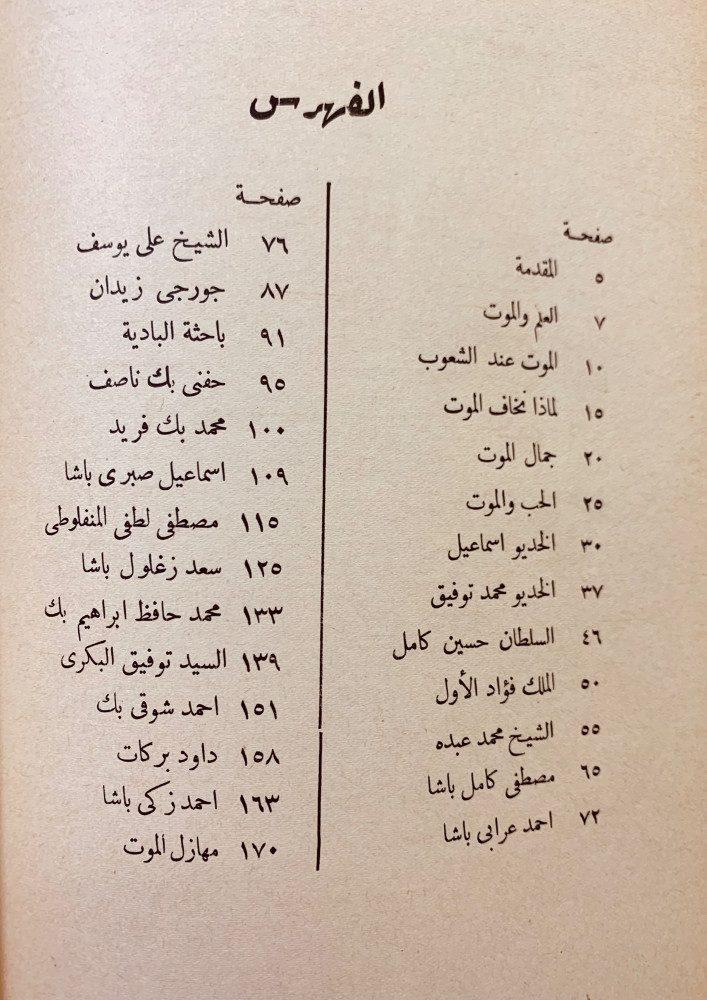 الفهرس
صفحة
٥ المقدمة
٧ العلم والموت
١٠ الموت عند الشعوب
١٥ لماذا نخاف الموت
٢٠ جمال الموت
٢٥ الحب والموت
٣٠ الخديو اسماعيل
٣٧ الخديو محمد توفيق
٤٦ السلطان حسين كامل
٥٠ الملك فؤاد الأول
٥٥ الشيخ محمد عبده
٦٥ مصطفى كامل باشا
٧٢ احمد عرابى باشا
صفحة
٧٦ الشيخ على يوسف
٨٧ جورجى زيدان
٩١ باحثة البادية
٩٥ حفنى بك ناصف
١٠٠ محمد بك فريد
١٠٩ اسماعيل صبرى باشا
١١٥ مصطفى لطفى المنفلوطى
١٢٥ سعد زغلول باشا
١٣٣ محمد حافظ ابراهيم بك
١٣٩ السيد توفيق البكرى
١٥١ احمد شوقى بك
١٥٨ داود بركات
١٦٣ احمد زكى باشا
١٧٠ مهازل الموت